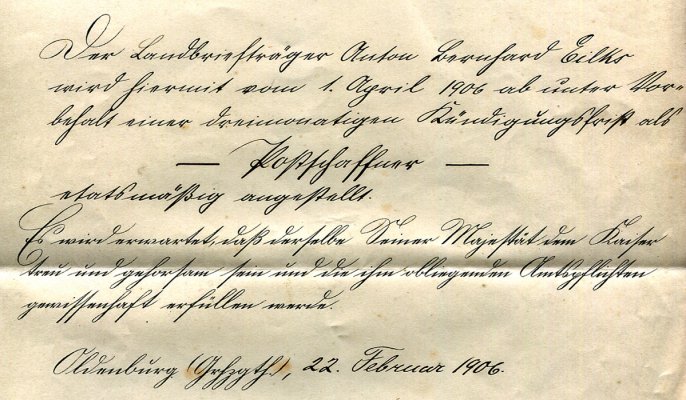 Der Landbriefträger Anton Bernhard Eilks
wird hiermit vom 1. April 1906 ab unter Vor=
behalt einer dreimonatigen Kündigungsfrist als
— Postschaffner —
etatsmäßig angestellt.
Es wird erwartet, daß derselbe Seiner Majestät dem Kaiser
treu und gehorsam sein und die ihm obliegenden Amtspflichten
gewissenhaft erfüllen werde.
Oldenburg (Grhzgth.), 22. Februar 1906.